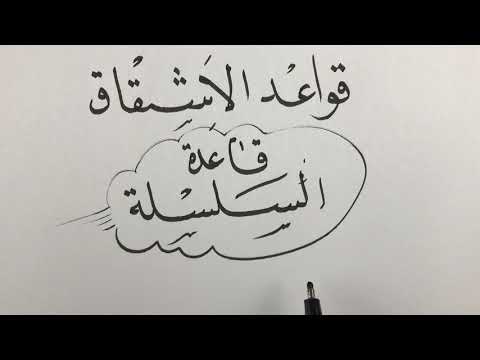 قواعد الاشتقاق
قاعدة
السلسلة